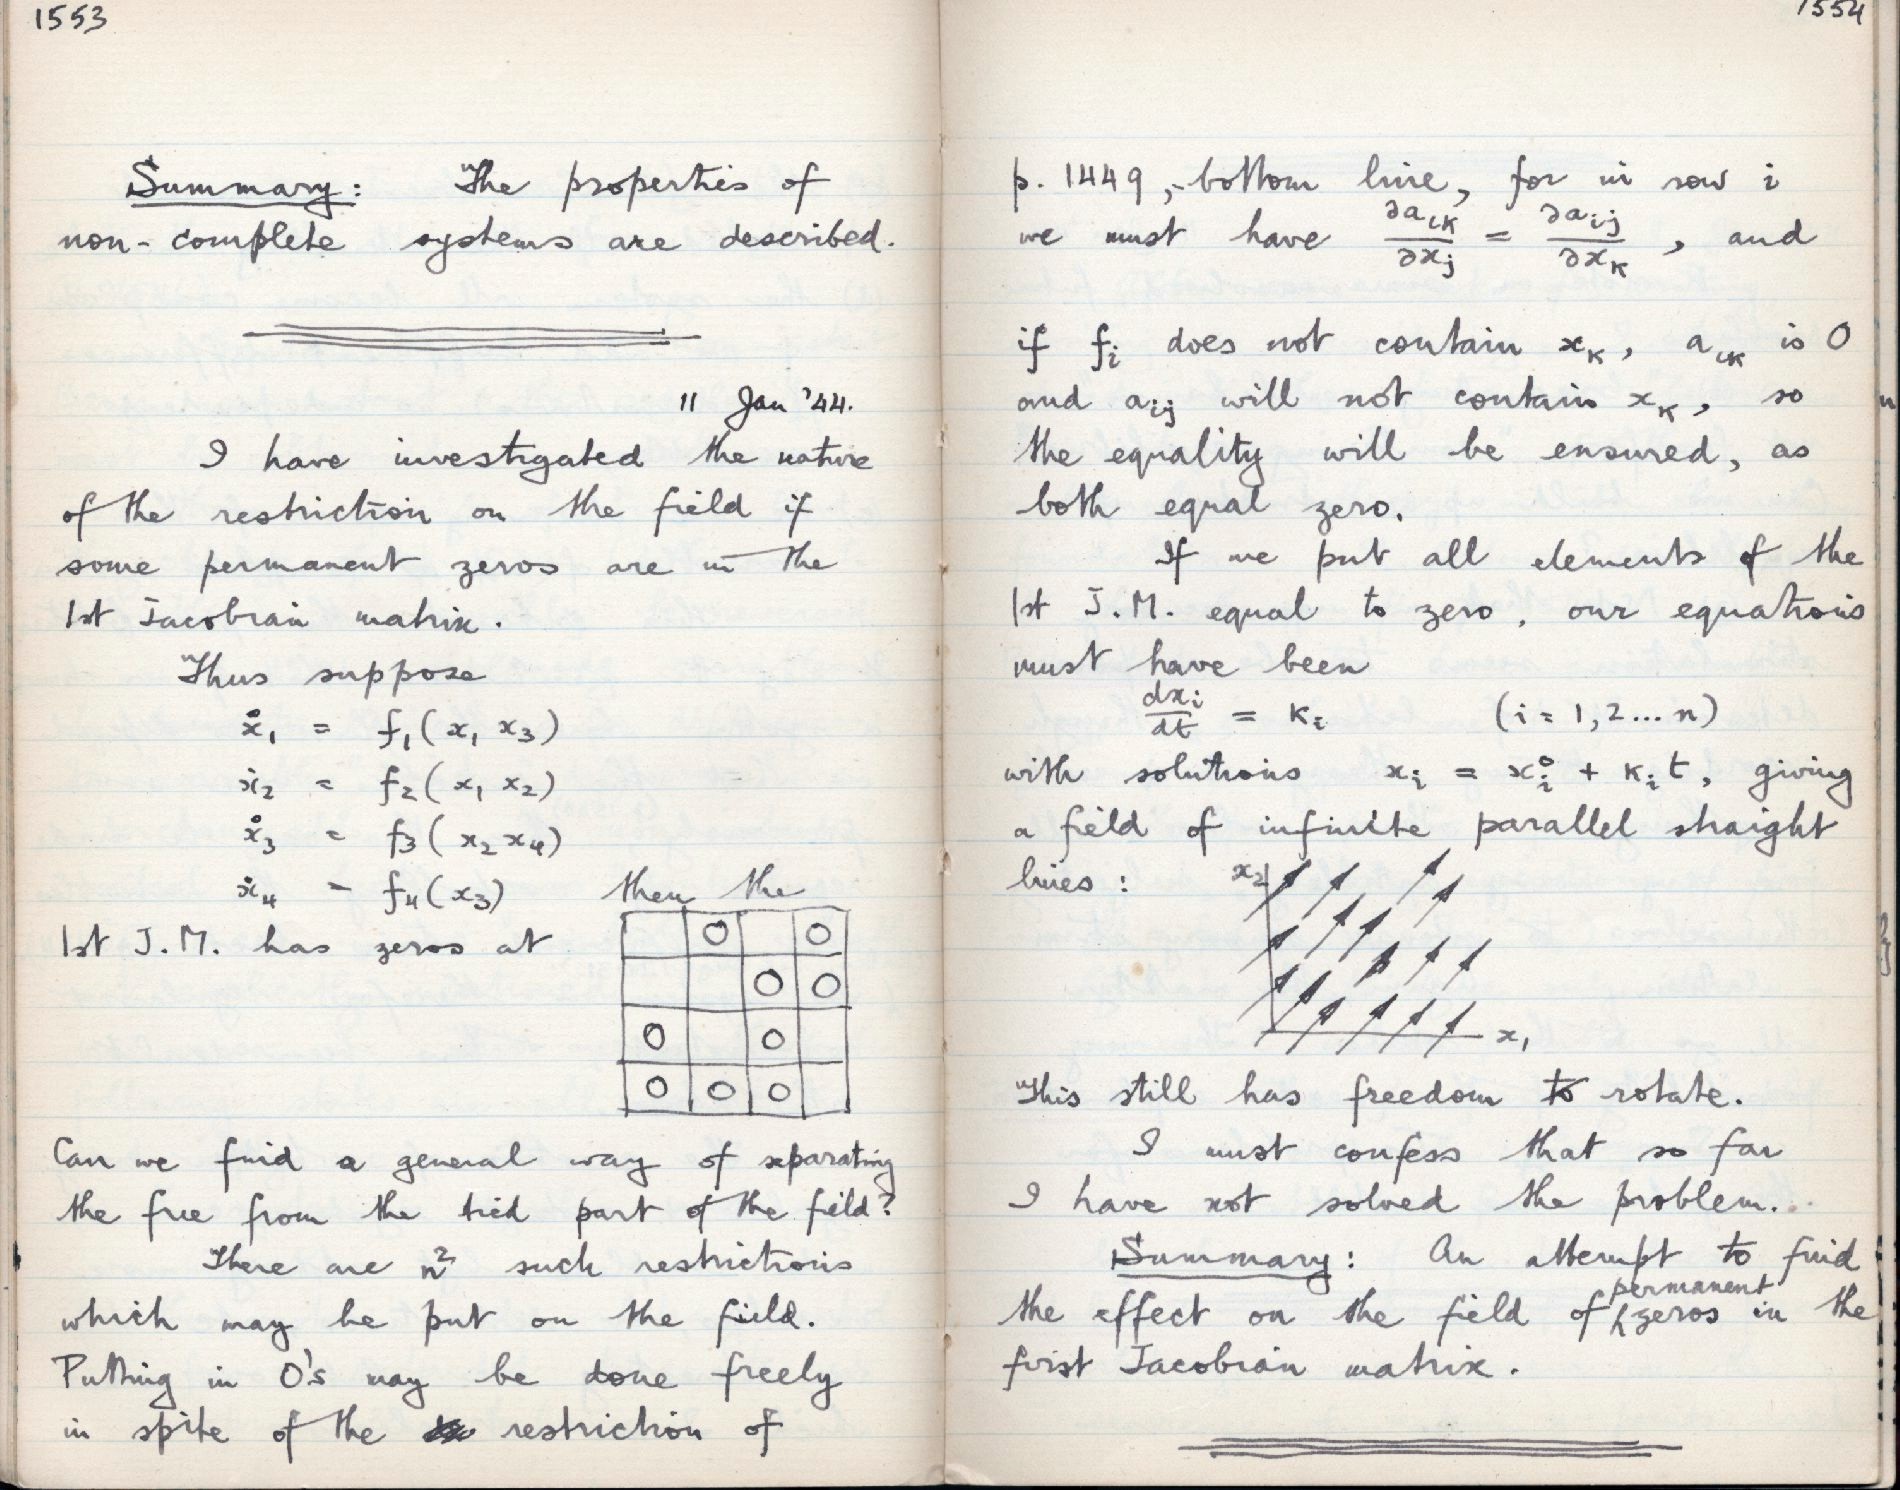 1553
Summary: The properties of
non-complete systems are described.
11 Jan '44.
I have investigated the nature
of the restriction on the field if
some permanent zeros are in the
1st Jacobian matrix.
Thus suppose
ẋ₁ = f₁(x₁ x₃)
ẋ₂ = f₂(x₁ x₂)
ẋ₃ = f₃(x₂ x₄)
ẋ₄ = f₄(x₃) then the
1st J.M. has zeros at
O O
O O
O O
O O O
Can we find a general way of separating
the free from the tied part of the field?
There are n² such restrictions
which may be put on the field.
Putting in O's may be done freely
in spite of the restriction of
1554
p. 1449, bottom line, for in row i
we must have ∂aᵢₖ/∂xⱼ = ∂aᵢⱼ/∂xₖ, and
if fᵢ does not contain xₖ, aᵢₖ is 0
and aᵢⱼ will not contain xₖ, so
the equality will be ensured, as
both equal zero.
If we put all elements of the
1st J.M. equal to zero, our equations
must have been
dxᵢ/dt = Kᵢ (i = 1, 2 ... n)
with solutions xᵢ = xᵢ° + Kᵢt, giving
a field of infinite parallel straight
lines: x₂
x₁
This still has freedom to rotate.
I must confess that so far
I have not solved the problem...
Summary: An attempt to find
the effect on the field of permanent zeros in the
first Jacobian matrix.